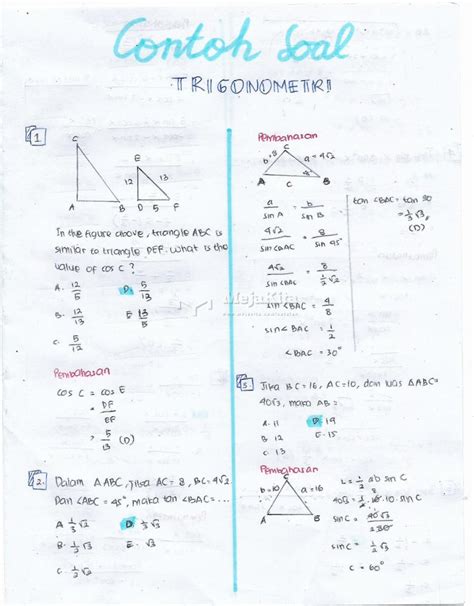 Contoh Soal
TRIGONOMETRI
1
C
A B
E
12 13
D 5 F
In the figure above, triangle ABC is
similar to triangle DEF. What is the
value of cos C?
A. 12/5 D. 5/13
B. 12/13 E. 13/5
C. 5/12
Pembahasan
cos C = cos E
= DF/EF
= 5/13 (D)
2. Dalam △ABC, jika AC = 8, BC = 4√2
Dan <ABC = 45°, maka tan <BAC = ...
A 1/3 √2 D. 1/3 √3
B. 1/2 √2 E. 1/2 √3
C. 1/2 √2
Pembahasan
C
b=8 a=4√2
A B
a/sin A = b/sin B
4√2/sin <BAC = 8/sin 45°
4√2/sin <BAC = 8/½√2
sin <BAC = 4/8
sin <BAC = 1/2
<BAC = 30°
tan <BAC = tan 30
= 1/3 √3
(D)
MejaKita
3. Jika BC = 16, AC = 10, dan luas △ABC =
40√3, maka AB =
A. 11 D. 14
B. 12 E. 15
C. 13
Pembahasan
C
b=10 a=16
A B
L = ½ ab sin C
40√3 = ½ 16.10 sin C
sin C = ½√3
C = 60°